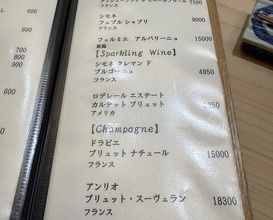 フランス
シモネ
フェブル シャブリ 9900
フランス
フェルミエ アルバリーニョ 15000
新潟
【Sparkling Wine】
シモネ クレマン ド
ブルゴーニュ 4950
フランス
ロデレール エステート
カルテット ブリュット
アメリカ
【Champagne】
ドラピエ
ブリュット ナチュール 15000
フランス
アンリオ
ブリュット・スーヴェラン 18300
フランス
600
700
800
900
600